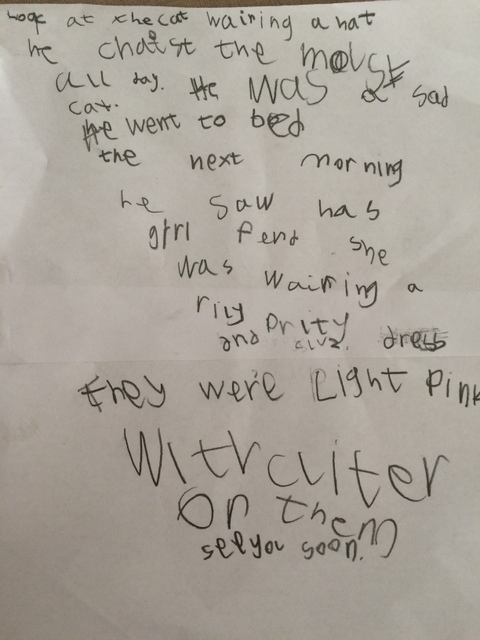 look at the cat wairing a hat
he chaist the mouse
all day. He was a sad
cat.
He went to bed
the next morning
he saw has
girl fend she
was wairing a
rily prity dress
and cluz.
they were Light Pink
With cliter
on them
see you soon.